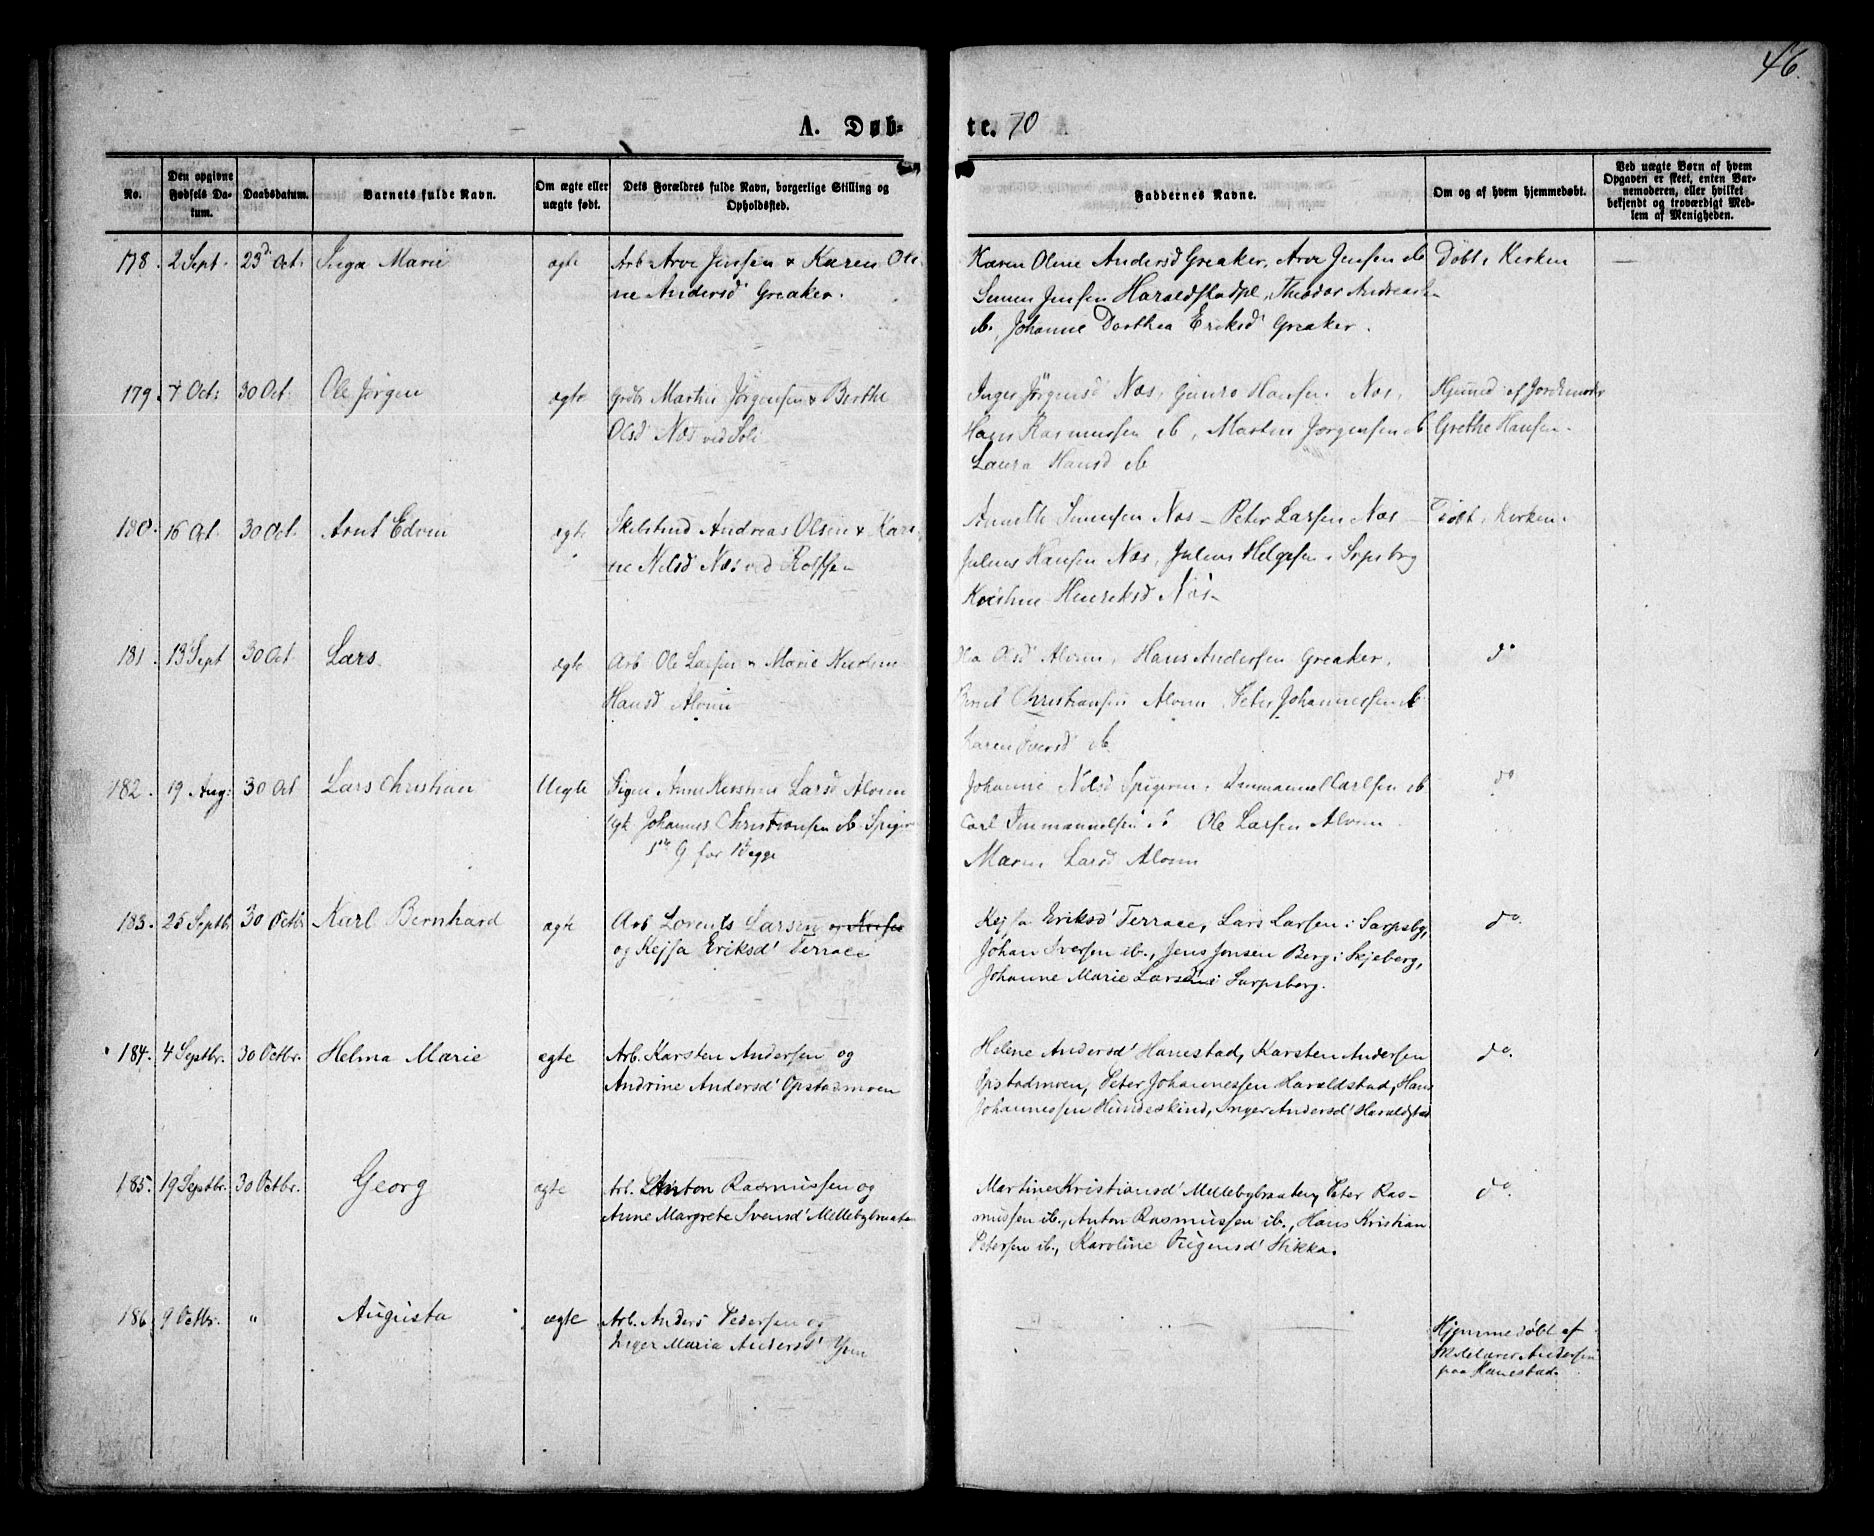 46.
A. Døb-
te. 70
No.
Den opgivne Fødsels Da-tum.
Daabsdatum.
Barnets fulde Navn.
Om ægte eller uægte født.
Dets Forældres fulde Navn, borgerlige Stilling og Opholdssted.
Faddernes Navne.
Om og af hvem hjemmedøbt.
Ved uægte Børn af hvem Opgaven er skeet, enten Bar-nemoderen, eller hvilket bekjendt og troværdigt Med-lem af Menigheden.
178. 2 Sept. 23d Oct. Inga Marie ægte Arb. Arve Jensen & Karen Oli-
ne Andersd Greaker.
Karen Oline Andersd Greaker, Arve Jensen ib
Simen Jensen Haraldstadpl, Theodor Andreas
ib, Johanne Dorthea Eriksd Greaker.
Døbt i Kirken
179. 7 Oct: 30 Oct: Ole Jørgen ægte Martin Jørgensen & Berthe
Olsd Næs ved Soli
Inger Jørgensd Næs, Hansen Næs,
Hans Rasmussen ib, Martin Jørgensen ib
Laura Hansd ib
Hjemmed af Jordemoder
Grethe Hansen.
180. 16 Oct. 30 Oct. Arnt Edvin ægte Andreas Olsen & Kari-
ne Nilsd Næs ved
Annethe Simensen Næs - Peter Larsen Næs -
Julius Hansen Næs, Julius Helgesen i Sarpsbrg
Kristine Henriksd Næs
Døbt i Kirken.
181. 13 Sept 30 Oct. Lars ægte Arb Ole Larsen & Marie
Hansd Alvim
Olsd Alvim, Hans Andersen Greaker,
Christiansen Alvim, Peter Johannessen ib
Karen Iversd ib
do
182. 19 Aug: 30 Oct Lars Christian Uegte Pigen Anne Kirstine Larsd Alvim
Johannes Christiansen ib
G for Begge
Johanne Nilsd Spigeren, Immanuel Carlsen ib
Carl Immanuelsen Ole Larsen Alvim
Maren Larsd Alvim
do
183. 25 Septbr 30 Octbr Karl Bernhard ægte Arb Lorents Larsen og
og Kejsa Eriksd Terrace
Kejsa Eriksd Terrace, Lars Larsen i Sarpsbg,
Johan Iversen ib., Jens Jonsen Berg i Skjeberg,
Johanne Marie Larsd i Sarpsborg.
do.
184. 4 Septbr. 30 Octbr. Helma Marie ægte Arb. Karsten Andersen og
Andrine Andersd Opstadmoen
Helene Andersd Hanestad, Karsten Andersen
Opstadmoen, Peter Johannessen Haraldstad, Hans
Johannessen Hundeskind, Inger Andersd Haraldstad
do.
185. 19 Septbr. 30 Octbr. Georg ægte Arb. Anton Rasmussen og
Anne Margrete Svensd Mellebybraaten
Martine Kristiansd Mellebybraaten, Peter Ras-
mussen ib., Anton Rasmussen ib., Hans Kristian
Petersen ib., Karoline Hikka.
do.
186. 9 Octbr. " Augusta ægte Arb. Anders Pedersen og
Inger Maria Andersd
Hjemmedøbt af
Andersen
paa Hanestad.